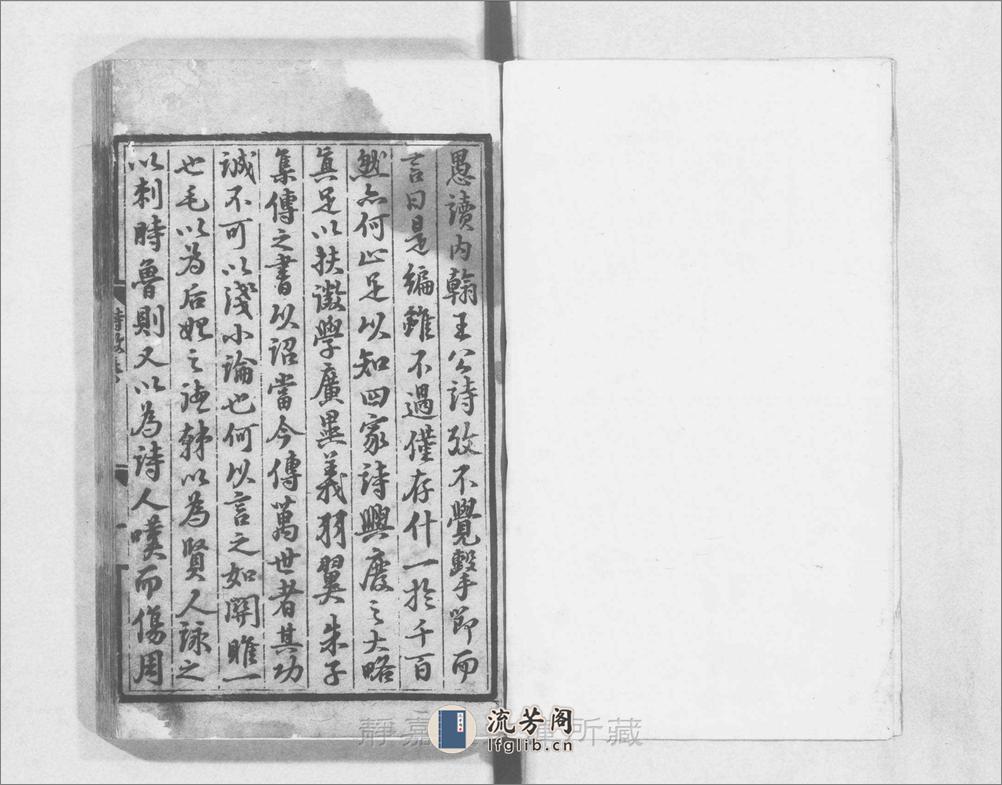 愚讀内翰王公詩攷不覺擊節而
言曰是編雖不過僅存什一於千百
然亦何止足以知四家詩興廢之大略
真足以扶微學廣異義羽翼朱子
集傳之書以詔當今傳萬世者其功
誠不可以淺小論也何以言之如關雎一
也毛以為后妃之德韓以為賢人詠之
以刺時魯則又以為詩人嘆而傷周
詩攷
一
靜嘉 所藏
流芳阁
lfglib.cn